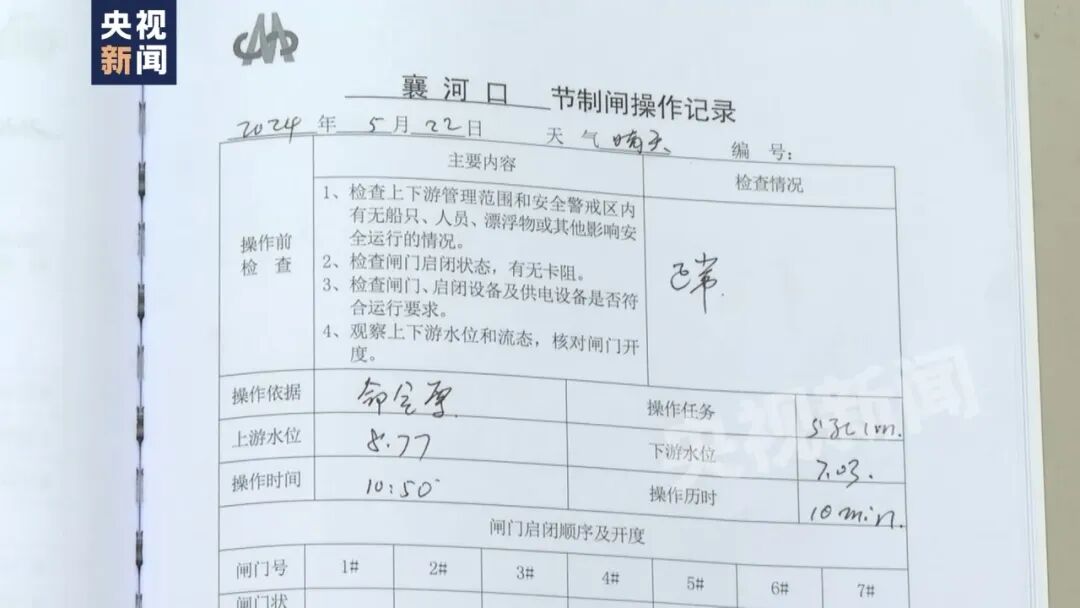 央视
新闻
襄河口 节制闸操作记录
2024年5月22日 天气 晴天 编号：
主要内容 检查情况
操作前
检查
1、检查上下游管理范围和安全警戒区内
有无船只、人员、漂浮物或其他影响安
全运行的情况。
2、检查闸门启闭状态，有无卡阻。
3、检查闸门、启闭设备及供电设备是否符
合运行要求。
4、观察上下游水位和流态，核对闸门开
度。
正常
操作依据 操作任务
上游水位 8.77 下游水位 7.03.
操作时间 10:50 操作历时 10min.
闸门启闭顺序及开度
闸门号 1# 2# 3# 4# 5# 6# 7#
闸门状
央视新闻